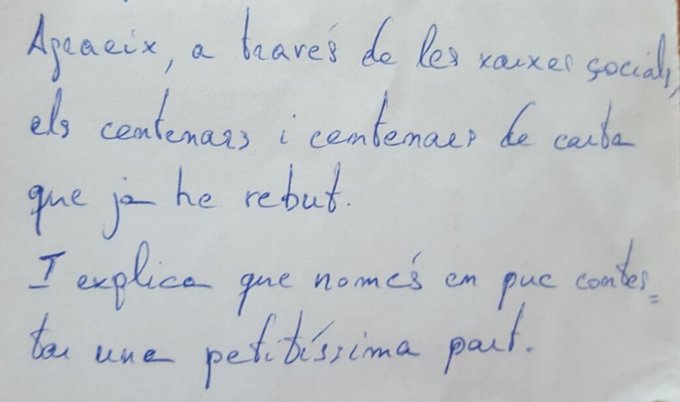 Agraeix, a través de les xarxes socials,
els centenars i centenars de carta
que ja he rebut.
I explica que només en puc contes=
tar una petitíssima part.